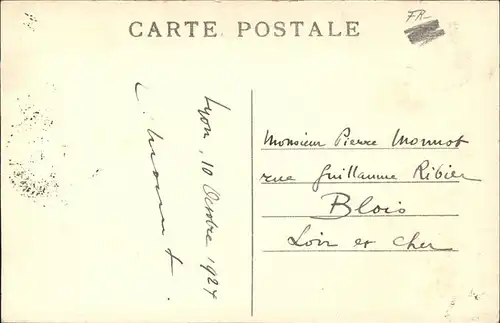 FR-
CARTE POSTALE
Lyon, 10 Octobre 1927
Monsieur Pierre Monnot
rue Guillaume Ribier
Blois
Loir et Cher